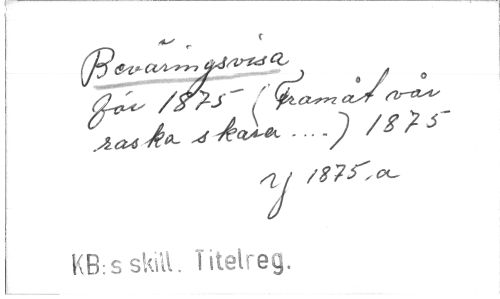 Beväringsvisa
för 1875 (Framåt vår
raska skara ....) 1875
Y 1875.a
KB:s skill. Titelreg.